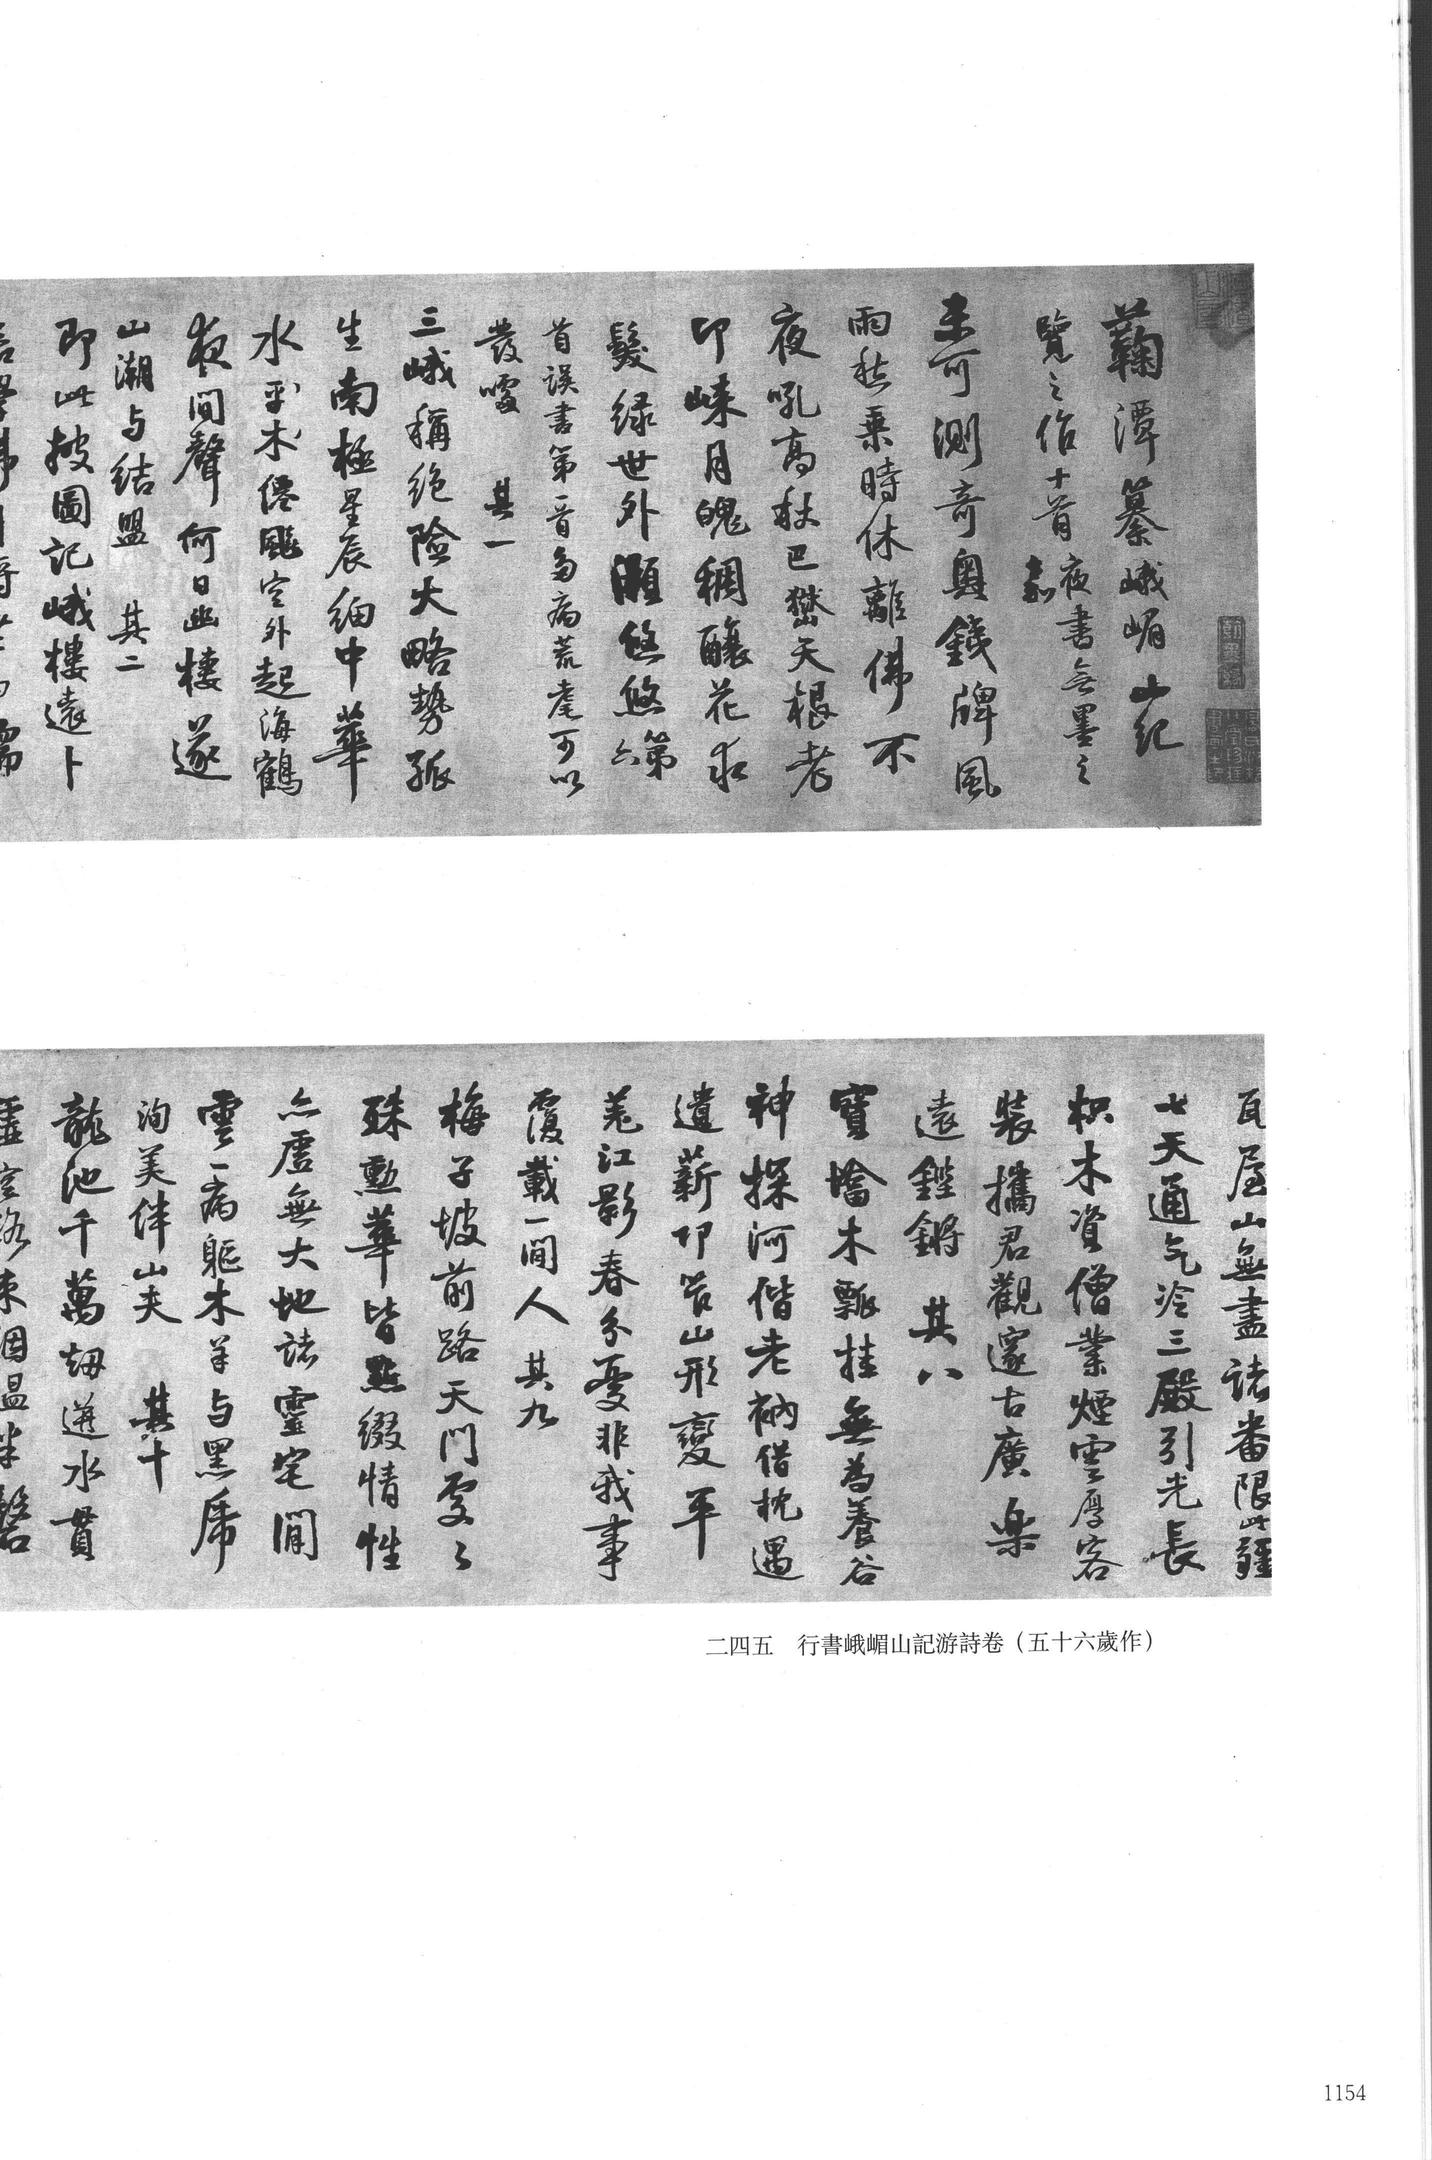 蘜潭纂峨嵋山紀
覽之作十首夜書無墨之
未可測奇奧錢牌風
雨愁乘時休離佛不
夜吼高秋巴㯹天根老
卬崍月魄稠釀花永
鬘绿世外灝悠悠第六
首误書第一首多病荒耄可以
發噱 其一
三峨稱绝險大略勢孤
生南極星辰細中華
水平木僊颷空外起海鶴
夜间聲何日幽棲遂
山潮与结盟 其二
即此披圖記峨樓遠卜
瓦屋山無盡诸番限此疆
七天通气冷三殿引光長
枳木資僧業煙雲厚客
裝攜君觀邃古廣樂
遠鏗鏘 其八
寶墖木瓢挂無為養谷
神探河偕老衲借枕遇
遺薪卬筰山形變平
羌江影春分憂非我事
覆載一间人 其九
梅子坡前路天門雯々
殊勳華皆點綴情性
亦虛無大地诸靈宅间
雲一病軀木羊与黑虎
洵美伴山夫 其十
龍池千萬劫遊水貫
二四五 行書峨嵋山記游詩卷（五十六歲作）
1154